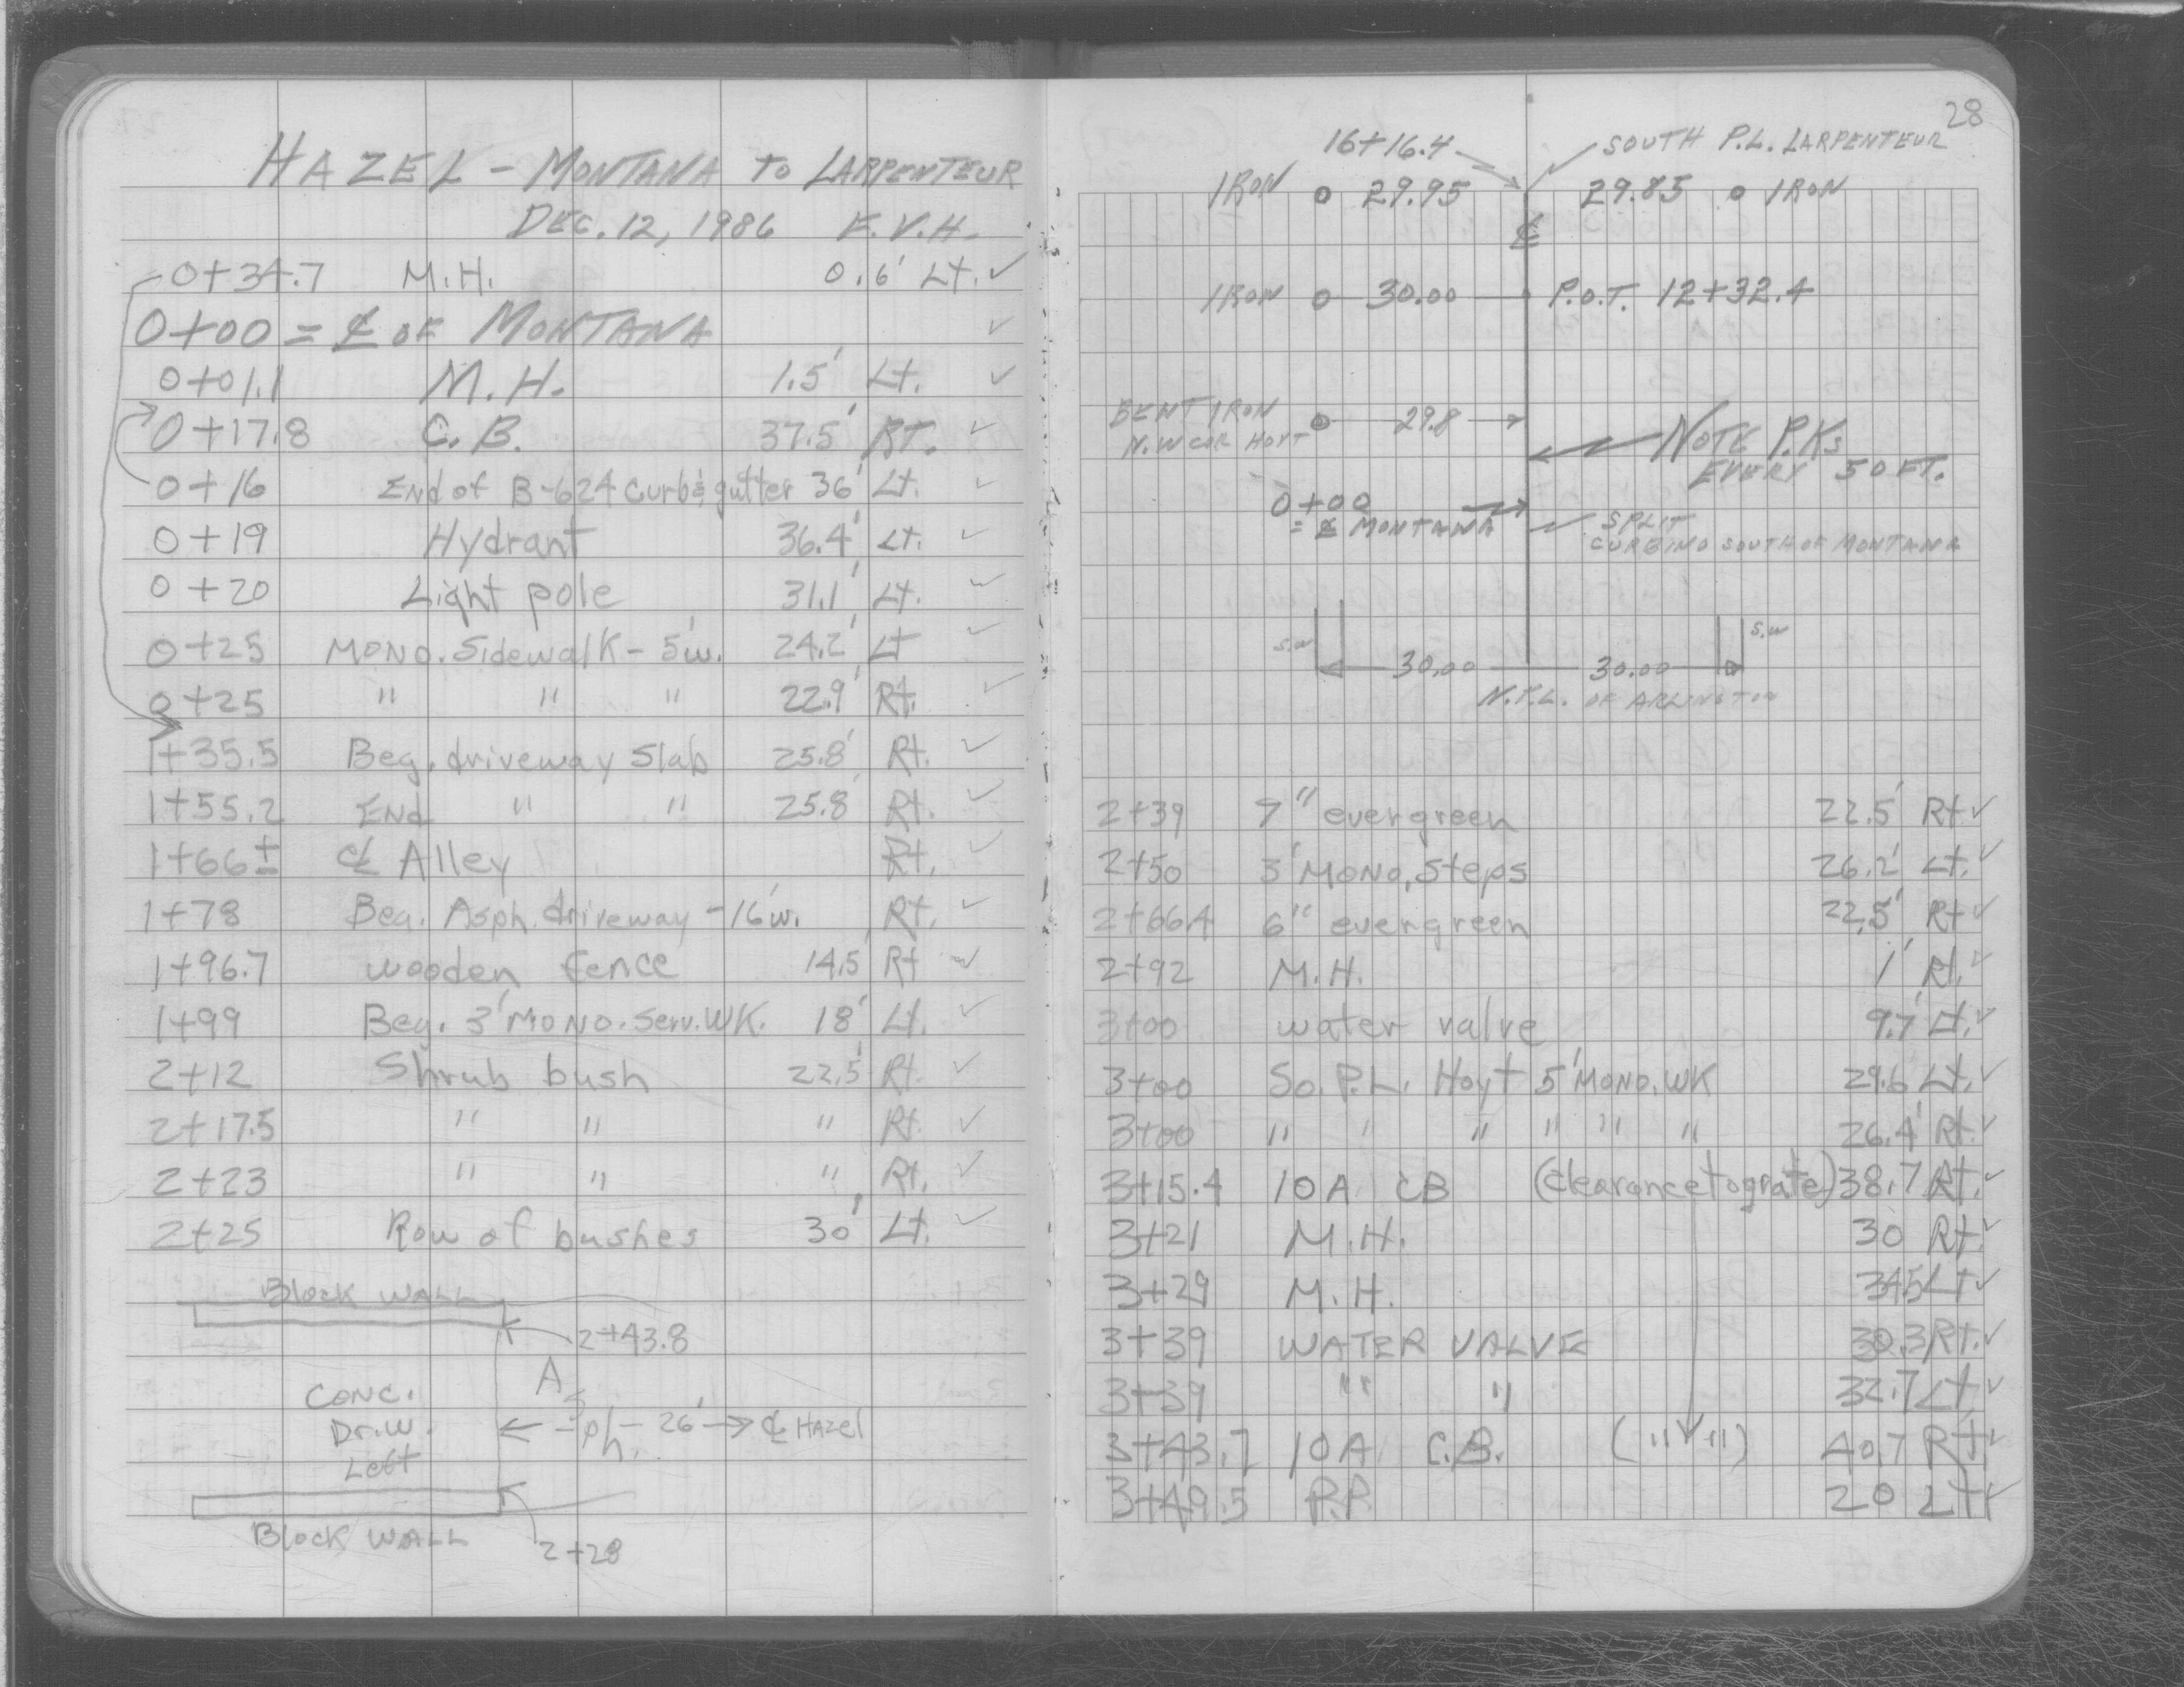 HAZEL - MONTANA TO LARPENTEUR
DEC. 12, 1986 E.V.H.
0+34.7 M.H. 0.6' Lt. ✓
0+00 = ℄ OF MONTANA ✓
0+01.1 M.H. 1.5' Lt. ✓
0+17.8 C.B. 37.5' RT. ✓
0+16 End of B-624 curb & gutter 36' Lt. ✓
0+19 Hydrant 36.4' Lt. ✓
0+20 Light pole 31.1' Lt. ✓
0+25 MONO. Sidewalk - 5'w. 24.2' Lt ✓
0+25 " " " 22.9' Rt. ✓
1+35.5 Beg. driveway Slab 25.8' Rt. ✓
1+55.2 End " " 25.8' Rt. ✓
1+66± ℄ Alley Rt. ✓
1+78 Beg. Asph. driveway - 16'w. Rt. ✓
1+96.7 wooden fence 14.5' Rt ✓
1+99 Beg. 3' MONO. Serv. WK. 18' Lt. ✓
2+12 Shrub bush 22.5' Rt. ✓
2+17.5 " " " Rt. ✓
2+23 " " " Rt. ✓
2+25 Row of bushes 30' Lt. ✓
Block WALL
2+43.8
Conc.
Dr.w.
Left
Asph. 26' ℄ Hazel
Block WALL
2+28
28
16+16.4 SOUTH P.L. LARPENTEUR
IRON 29.95 29.85 IRON
℄
IRON 30.00 P.O.T. 12+32.4
BENT IRON
N.W COR HOYT 29.8
NOTE P.Ks
EVERY 50 FT.
0+00
= ℄ MONTANA
SPLIT
CURBING SOUTH OF MONTANA
S.W S.W
30.00 30.00
N.P.L. OF ARLINGTON
2+39 7" evergreen 22.5' Rt ✓
2+50 3' MONO. Steps 26.2' Lt. ✓
2+66.4 6" evergreen 22.5' Rt ✓
2+92 M.H. 1' Rt. ✓
3+00 water valve 9.7' Lt. ✓
3+00 So. P.L. Hoyt 5' MONO. WK 29.6' Lt. ✓
3+00 " " " " " " 26.4' Rt. ✓
3+15.4 10A CB (clearance to grate) 38.7 Rt. ✓
3+21 M.H. 30 Rt. ✓
3+29 M.H. 34.5 Lt ✓
3+39 WATER VALVE 30.3 Rt. ✓
3+39 " " 32.7 Lt ✓
3+43.7 10A C.B. (" ") 40.7 Rt. ✓
3+49.5 P.P. 20 Lt ✓